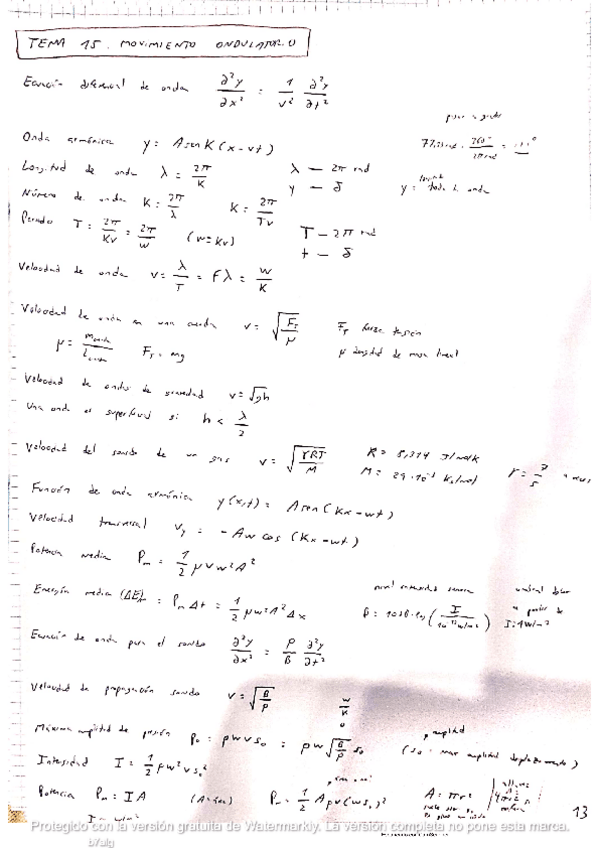 TEMA 15. MOVIMIENTO ONDULATORIO
Ecuación diferencial de onda ∂²y/∂x² = 1/v² ∂²y/∂t²
Onda armónica y = A sen K(x-vt)
Longitud de onda λ = 2π/K λ — 2π rad
y — δ
Número de onda K = 2π/λ K = 2π/Tv
Periodo T = 2π/Kv = 2π/w (w=Kv) T — 2π rad
t — δ
Velocidad de onda v = λ/T = Fλ = w/K
Velocidad de onda en una cuerda v = √(F_T/μ) F_T fuerza tensión
μ = m cuerda/L cuerda F_T = mg μ densidad de masa lineal
Velocidad de ondas de gravedad v = √gh
Una onda es superficial si h < λ/2
Velocidad del sonido de un gas v = √(γRT/M) R = 8,314 J/molK
M = 29·10⁻³ Kg/mol γ = 7/5
Función de onda armónica y(x,t) = A sen(Kx-wt)
Velocidad transversal v_y = -Aw cos(Kx-wt)
Potencia media P_m = 1/2 μvw²A²
Energía media (ΔE)m = P_m Δt = 1/2 μw²A²Δx
nivel intensidad sonora
umbral dolor
a partir de
I=1W/m²
Ecuación de onda para el sonido ∂²y/∂x² = ρ/B ∂²y/∂t²
Velocidad de propagación sonido v = √(B/ρ)
w/K
Máxima amplitud de presión p₀ = ρwvs₀ = ρw√(B/ρ) s₀ (s₀ = max amplitud desplazamiento)
amplitud
Intensidad I = 1/2 ρw²vs₀²
Potencia P_m = IA P_m = 1/2 Aρv(ws₀)² A = πr²
13
Protegido con la versión gratuita de Watermarkly. La versión completa no pone esta marca.